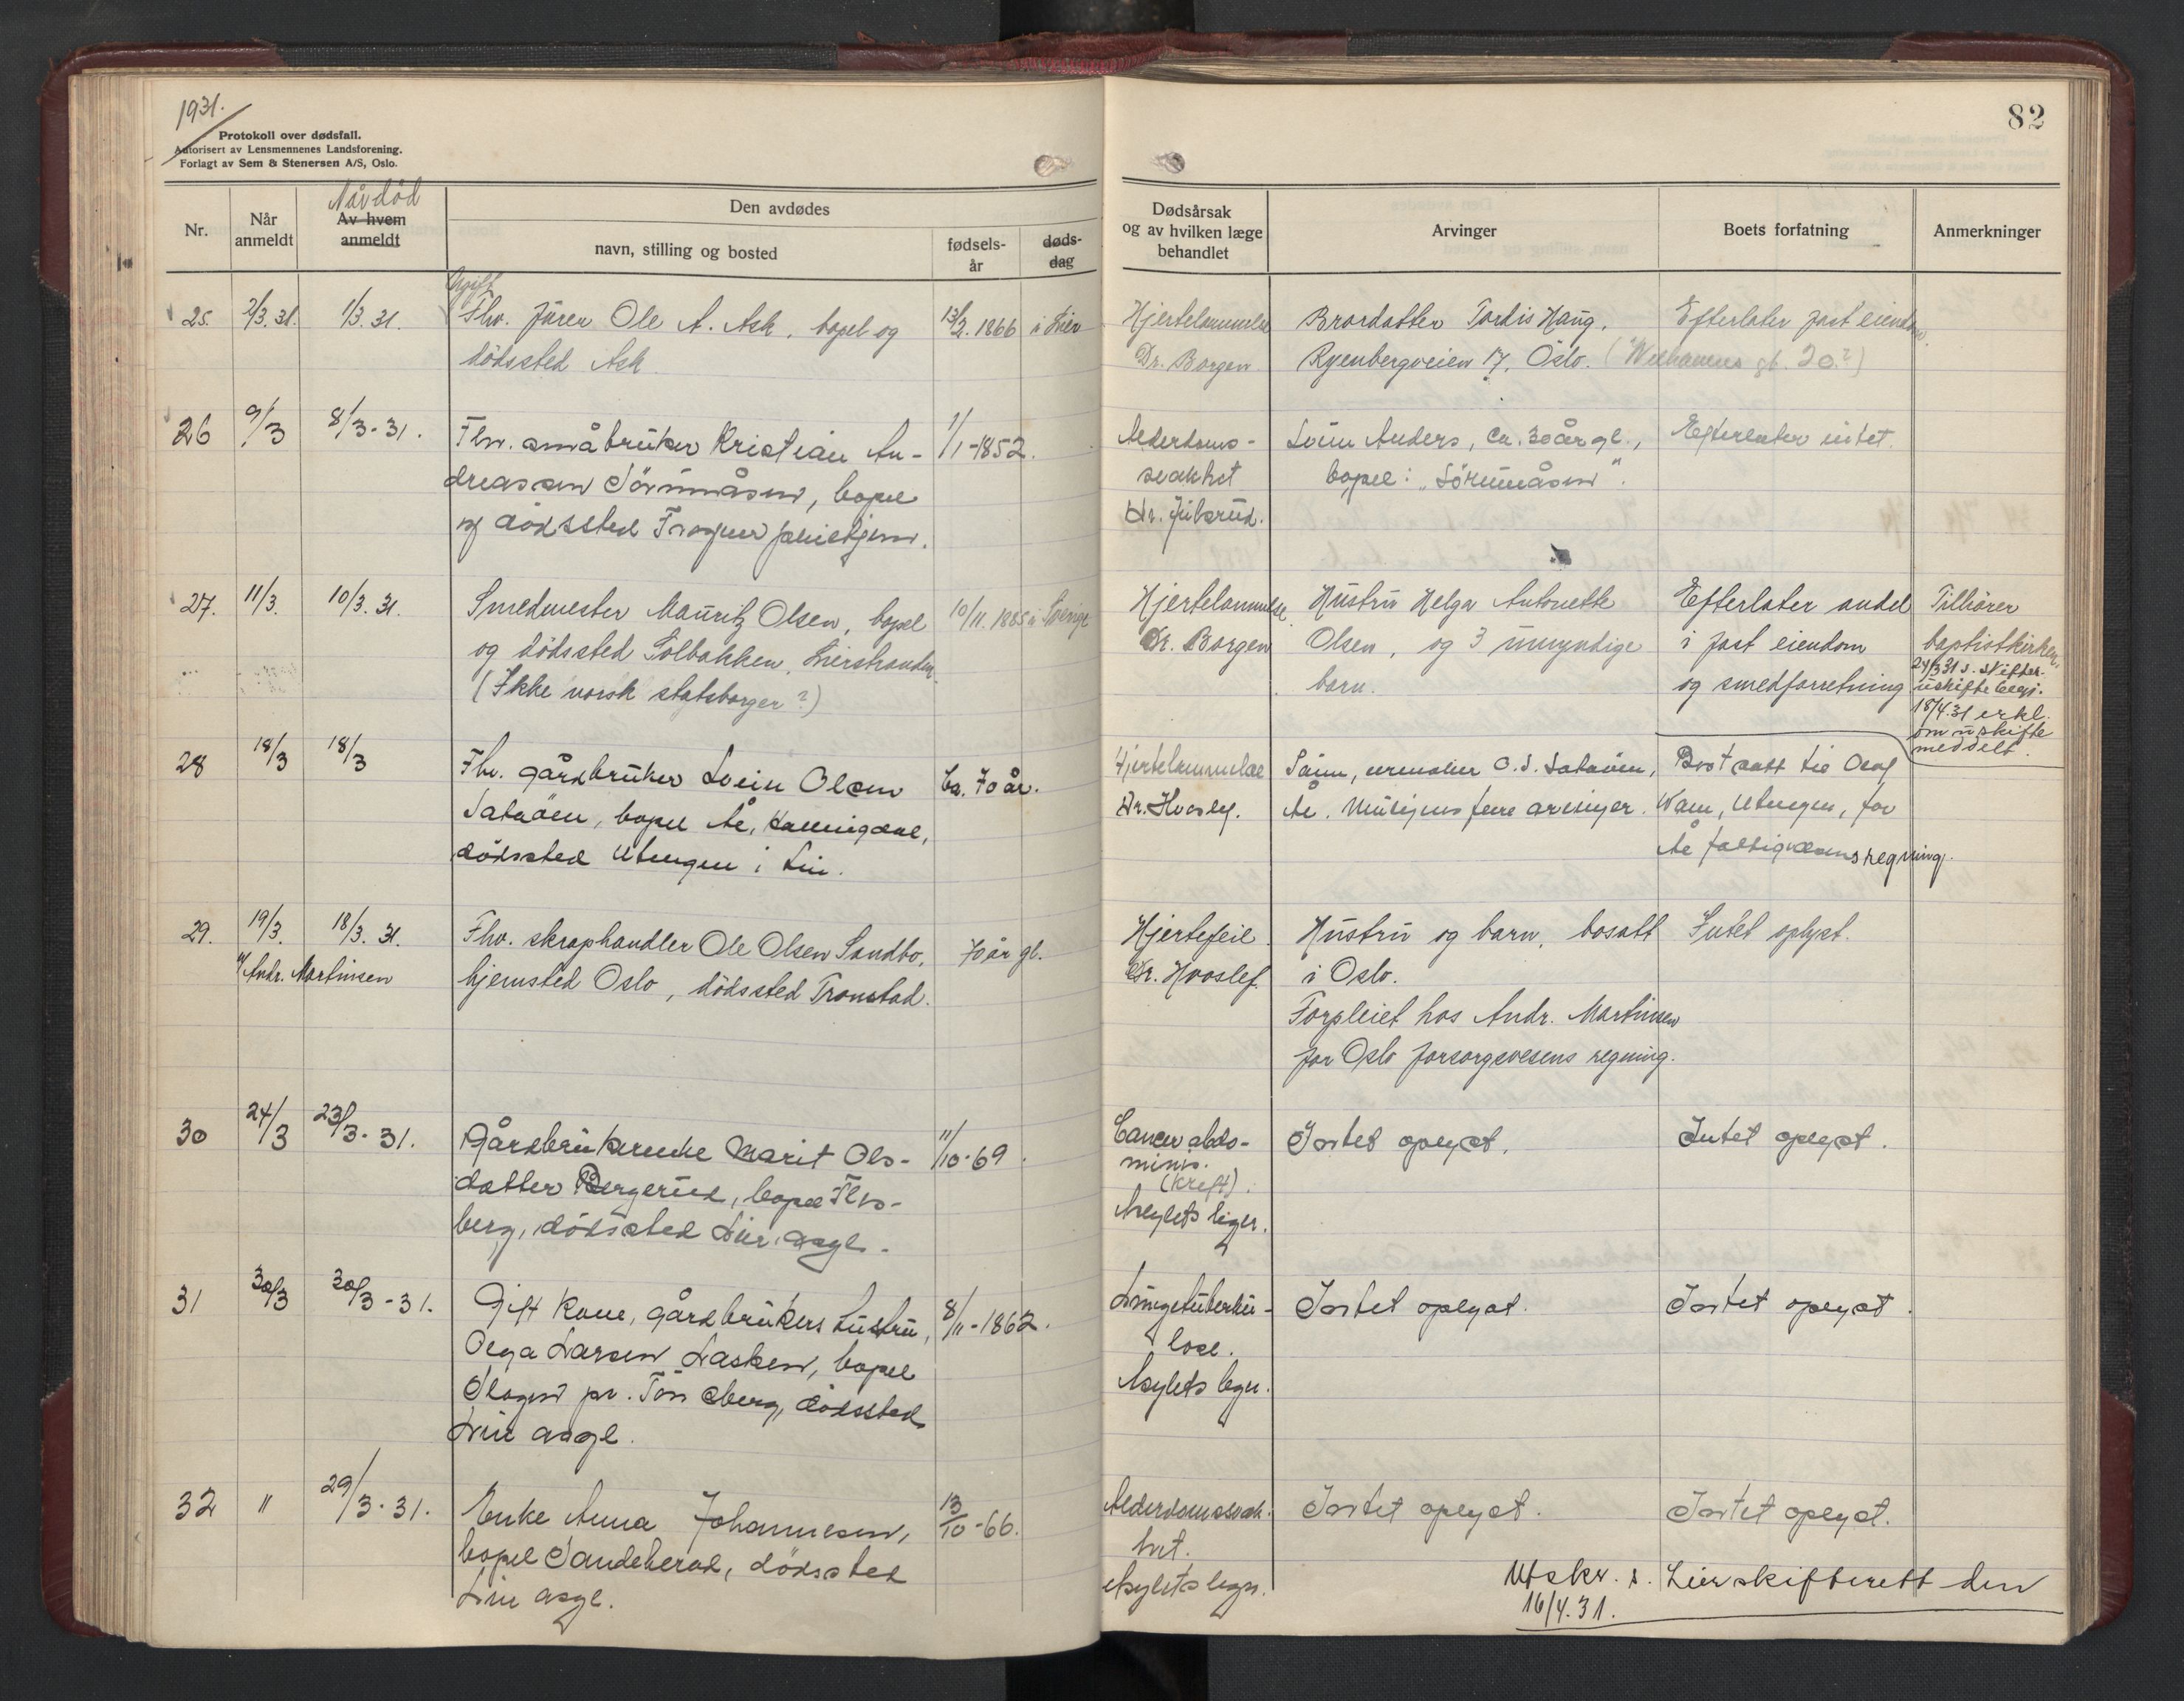 1931.
Protokoll over dødsfall.
Autorisert av Lensmennenes Landsforening.
Forlagt av Sem & Stenersen A/S, Oslo.
82
Nr.
Når anmeldt
Av hvem anmeldt
Når død
Den avdødes
navn, stilling og bosted
fødsels-år
døds-dag
Dødsårsak og av hvilken læge behandlet
Arvinger
Boets forfatning
Anmerkninger
25. 2/3.31. 1/3.31. Ugift
Fhv. fører Ole A. Ask, bopel og 13/2.1866 i Lier
dödssted Ask.
Hjertelammelse Brordatter Tordis Haug, Efterlater fast eiendom
Dr. Borgen Ryenbergveien 17, Oslo. (Welhavens gt. 20?)
26 9/3 8/3-31. Fhv. småbruker Kristian An- 1/1-1852.
dreassen Sörumåsen, bopel
og dödssted Frogner pleiehjem.
Alderdoms- Sönn Anders, ca. 30 år gl., Efterlater intet.
svakhet bopel: "Sörumåsen".
Dr. Juberud.
27. 11/3. 10/3.31. Smedmester Mauritz Olsen, bopel 10/11.1885 i Sverige
og dödssted Solbakken, Lierstranden.
(Ikke norsk statsborger?)
Hjertelammelse. Hustru Helga Antonette Efterlater andel Tilhörer
Dr. Borgen Olsen, og 3 umyndige i fast eiendom baptistkirken.
barn. og smedforretning
24/3 31 s. skifter.
uskiftebegj.
18/4.31 erkl.
om uskifte
meddelt.
28 18/3 18/3 Fhv. gårdbruker Svein Olsen Ca. 70 år.
Sataöen, bopel Ål, Hallingdal,
dödssted Utengen i Lier.
Hjertelammelse Sönn, O. S. Sataöen, Bortsatt til Olaf
Dr. Hvoslef. Ål. Muligens flere arvinger. Wam, Utengen, for
Ål fattigvesens regning.
29. 19/3. 18/3.31. Fhv. skraphandler Ole Olsen Sandbo, 70 år gl.
v/ Andr. Martinsen hjemsted Oslo, dödssted Tronstad.
Hjertefeil Hustru og barn, bosatt Intet oplyst.
Dr. Hvoslef. i Oslo.
Forpleiet hos Andr. Martinsen
for Oslo forsorgsvesens regning.
30 24/3 23/3-31. Gårdbrukerenke Marit Ols- 11/10-69.
datter Bergerud, bopel Fles-
berg, dödssted Lier asyl.
Cancer abdo- Intet oplyst. Intet oplyst.
minis.
(Kreft).
Asylets leger.
31 30/3 30/3-31. Gift kone, gårdbrukers hustru, 8/11-1862.
Olga Larsen Lasken, bopel
Slagen pr. Tönsberg, dödssted
Lier asyl.
Lungetuberku- Intet oplyst. Intet oplyst.
lose.
Asylets leger.
32 " 29/3-31. Enke Anna Johannesen, 13/10-66.
bopel Sandeherad, dödssted
Lier asyl.
Alderdomssvak- Intet oplyst. Intet oplyst.
het.
Asylets leger.
Utskr. s. Lier skifterett den
16/4.31.